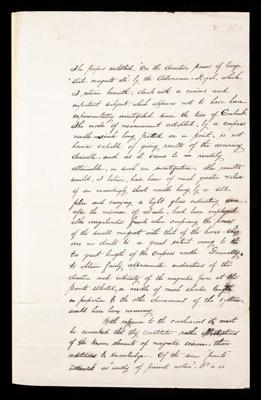 The paper entitled, "On the directive power of large
steel magnets &c" by the Astronomer-Royal, which
I return herewith, deals with a curious and
important subject, which appears not to have been
experimentally investigated since the time of Coulomb.
The mode of measurement adopted, by a compass
needle inch long pitched on a point, is not
however capable of giving results of the accuracy
desirable, and as it seems to me readily
attainable, in such an investigation. The results
would, I believe, have been of much greater value
if an exceedingly short needle hung by a silk
fibre and carrying a light glass indicating
after the manner of had been employed.
The irregularities found when comparing the power
of the small magnet with that of the large
are no doubt to a great extent owing to the
too great length of the compass needle. Generally
to obtain fairly approximate indications of the
direction and intensity of the magnetic force at the
points selected, a needle of much shorter length
in proportion to the other dimensions of the system
would have been necessary.
With reference to the conclusions it must
be remarked that they constitute rather
of the known elements of magnetic science, than
additions to knowledge. Of the six points
as "worthy of present notice", No. 2 is